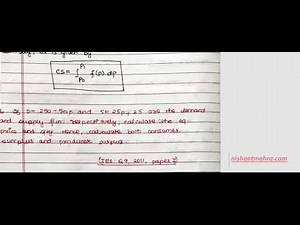 is given by
CS = ∫ P₁ P₀ f(p).dp
If D = 250-50p and S = 25p+25 are the demand
and supply fun. respectively, calculate the eq.
price and qty. Hence, calculate both consumer
surplus and producer surplus.
[IES Q9, 2011, paper I]
nishantmehra.com